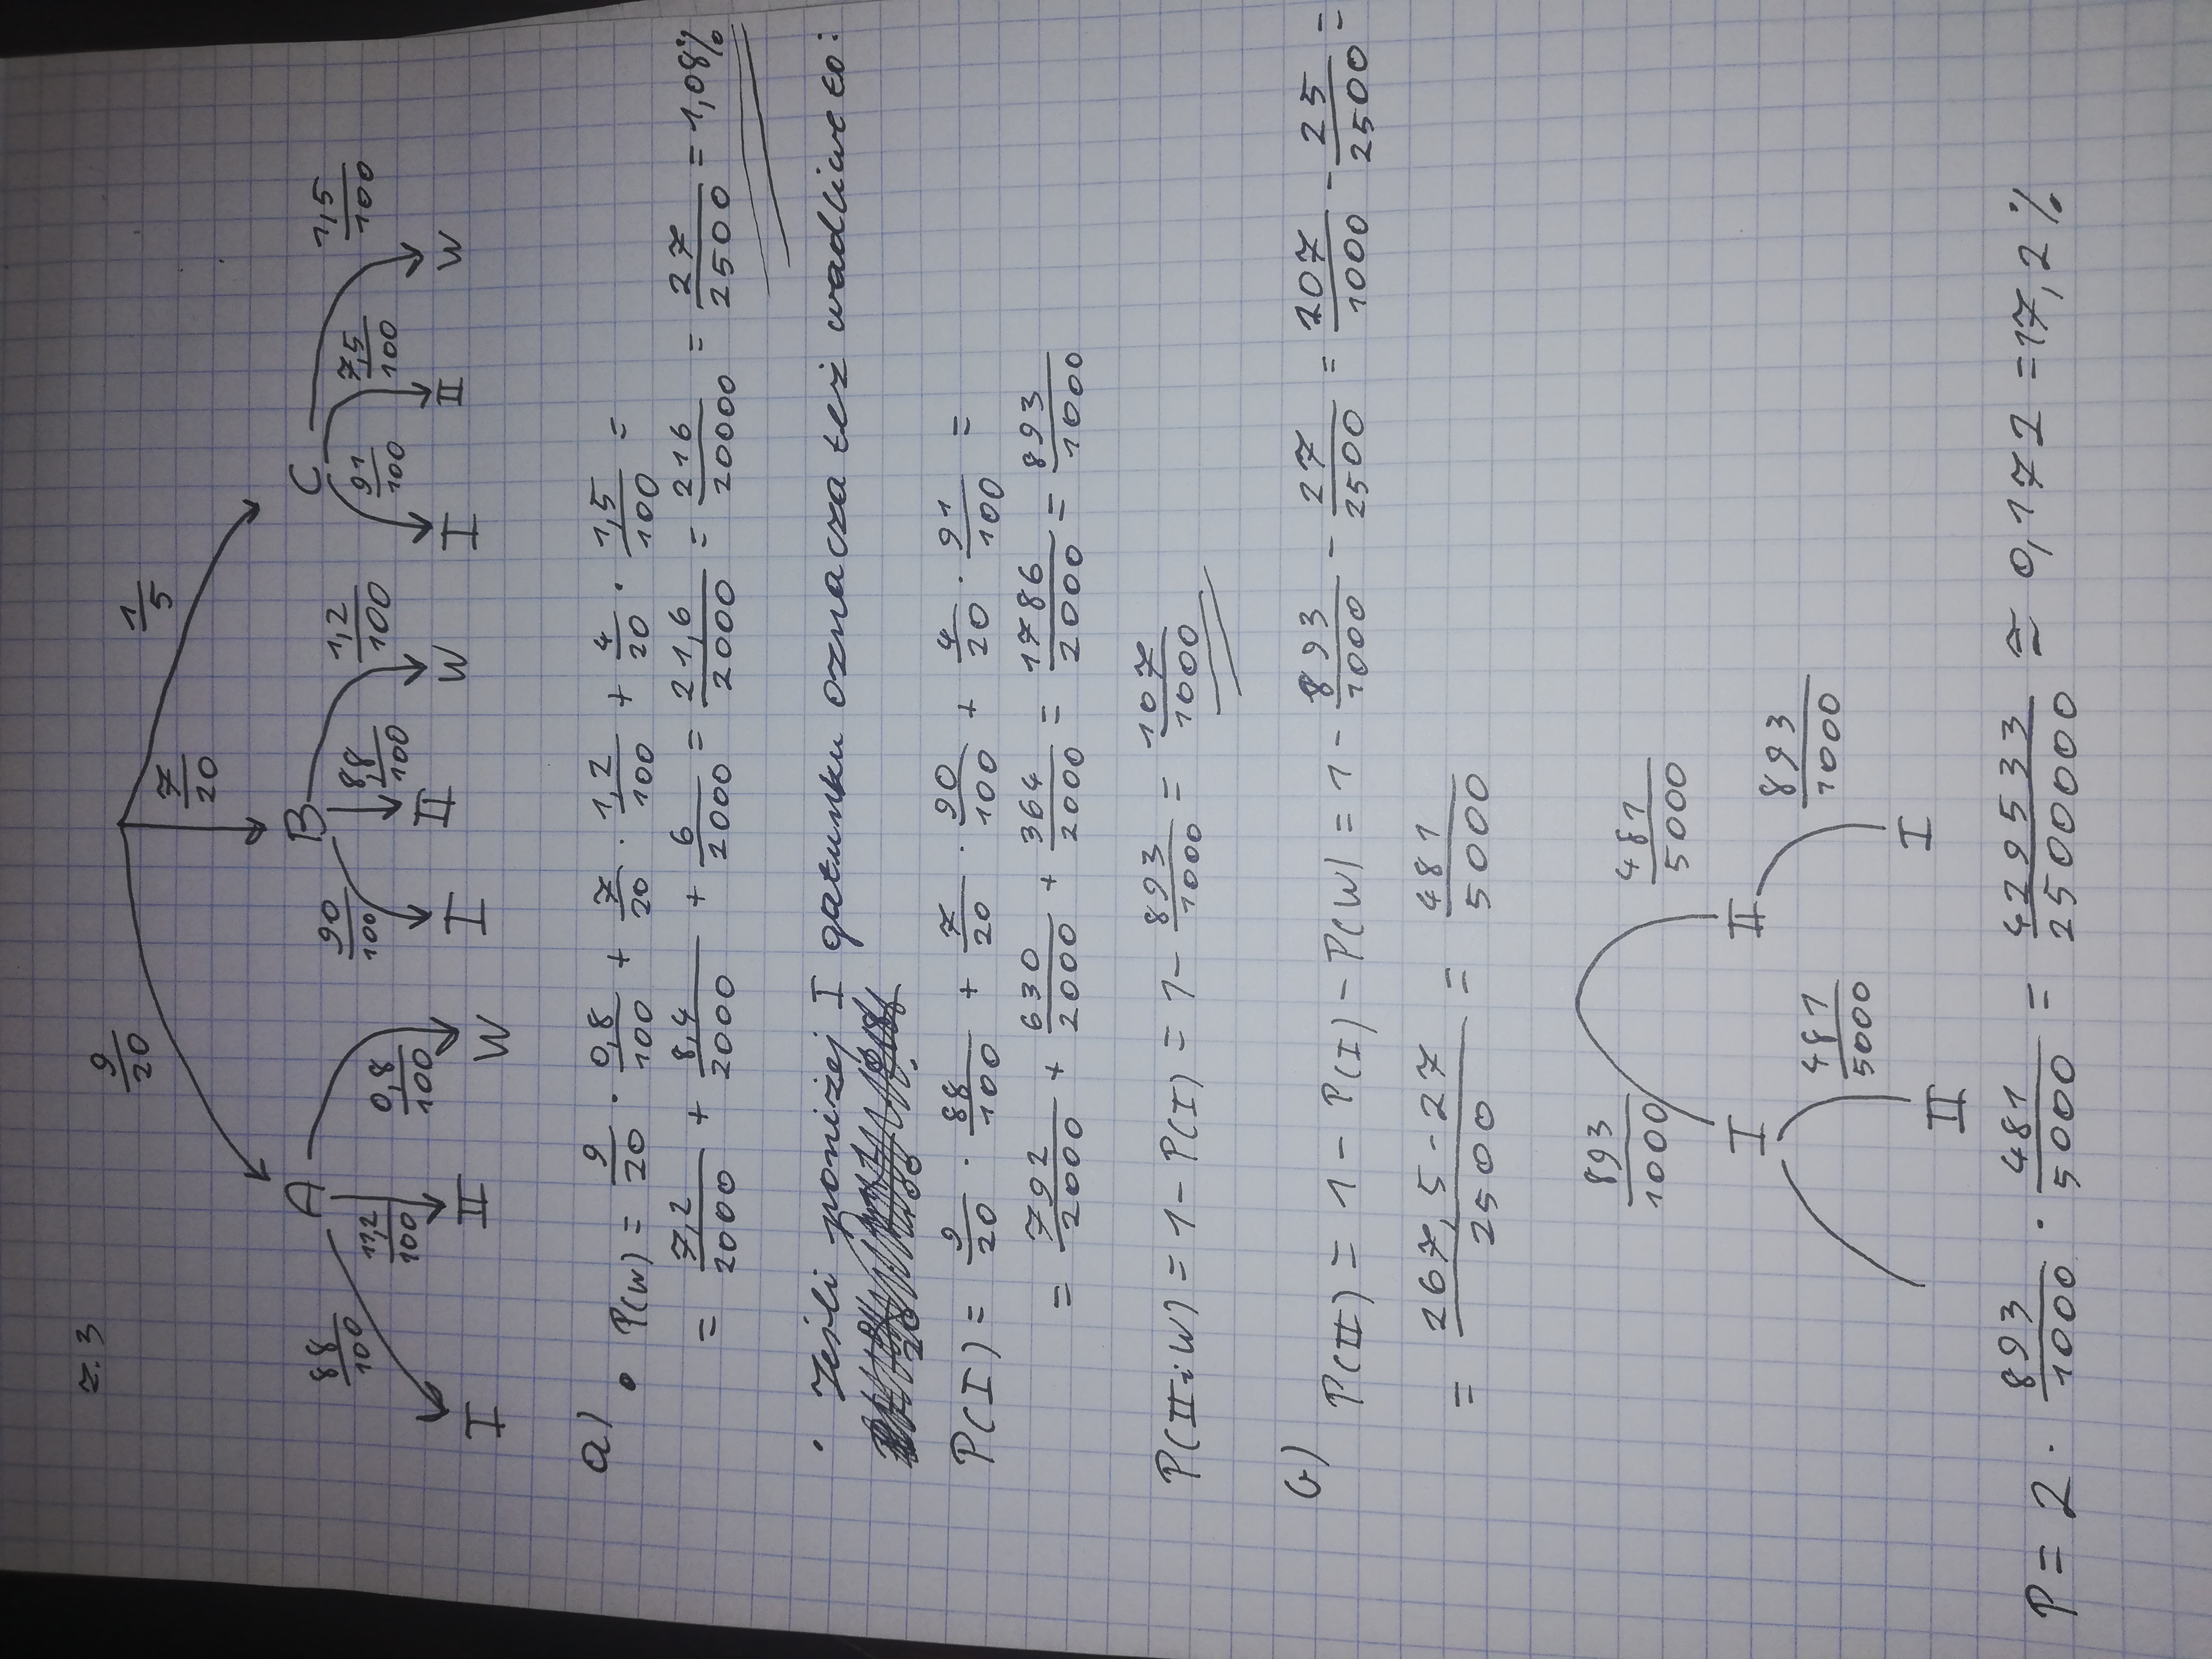 z.3
9/20 7/20 1/5
A B C
88/100 11,2/100 0,8/100 90/100 8,8/100 1,2/100 91/100 7,5/100 1,5/100
I II W I II W I II W
a) • P(W) = 9/20 · 0,8/100 + 7/20 · 1,2/100 + 4/20 · 1,5/100 =
= 7,2/2000 + 8,4/2000 + 6/2000 = 21,6/2000 = 216/20000 = 27/2500 = 1,08%
• Jeśli poniżej I gatunku oznacza też wadliwe to:
P(I) = 9/20 · 88/100 + 7/20 · 90/100 + 4/20 · 91/100 =
= 792/2000 + 630/2000 + 364/2000 = 1786/2000 = 893/1000
P(II i W) = 1 - P(I) = 1 - 893/1000 = 107/1000
b) P(II) = 1 - P(I) - P(W) = 1 - 893/1000 - 27/2500 = 107/1000 - 25/2500 =
= 267,5 - 27/2500 = 481/5000
893/1000 481/5000
I II
481/5000 893/1000
II I
P = 2 · 893/1000 · 481/5000 = 429533/2500000 ≈ 0,172 = 17,2%